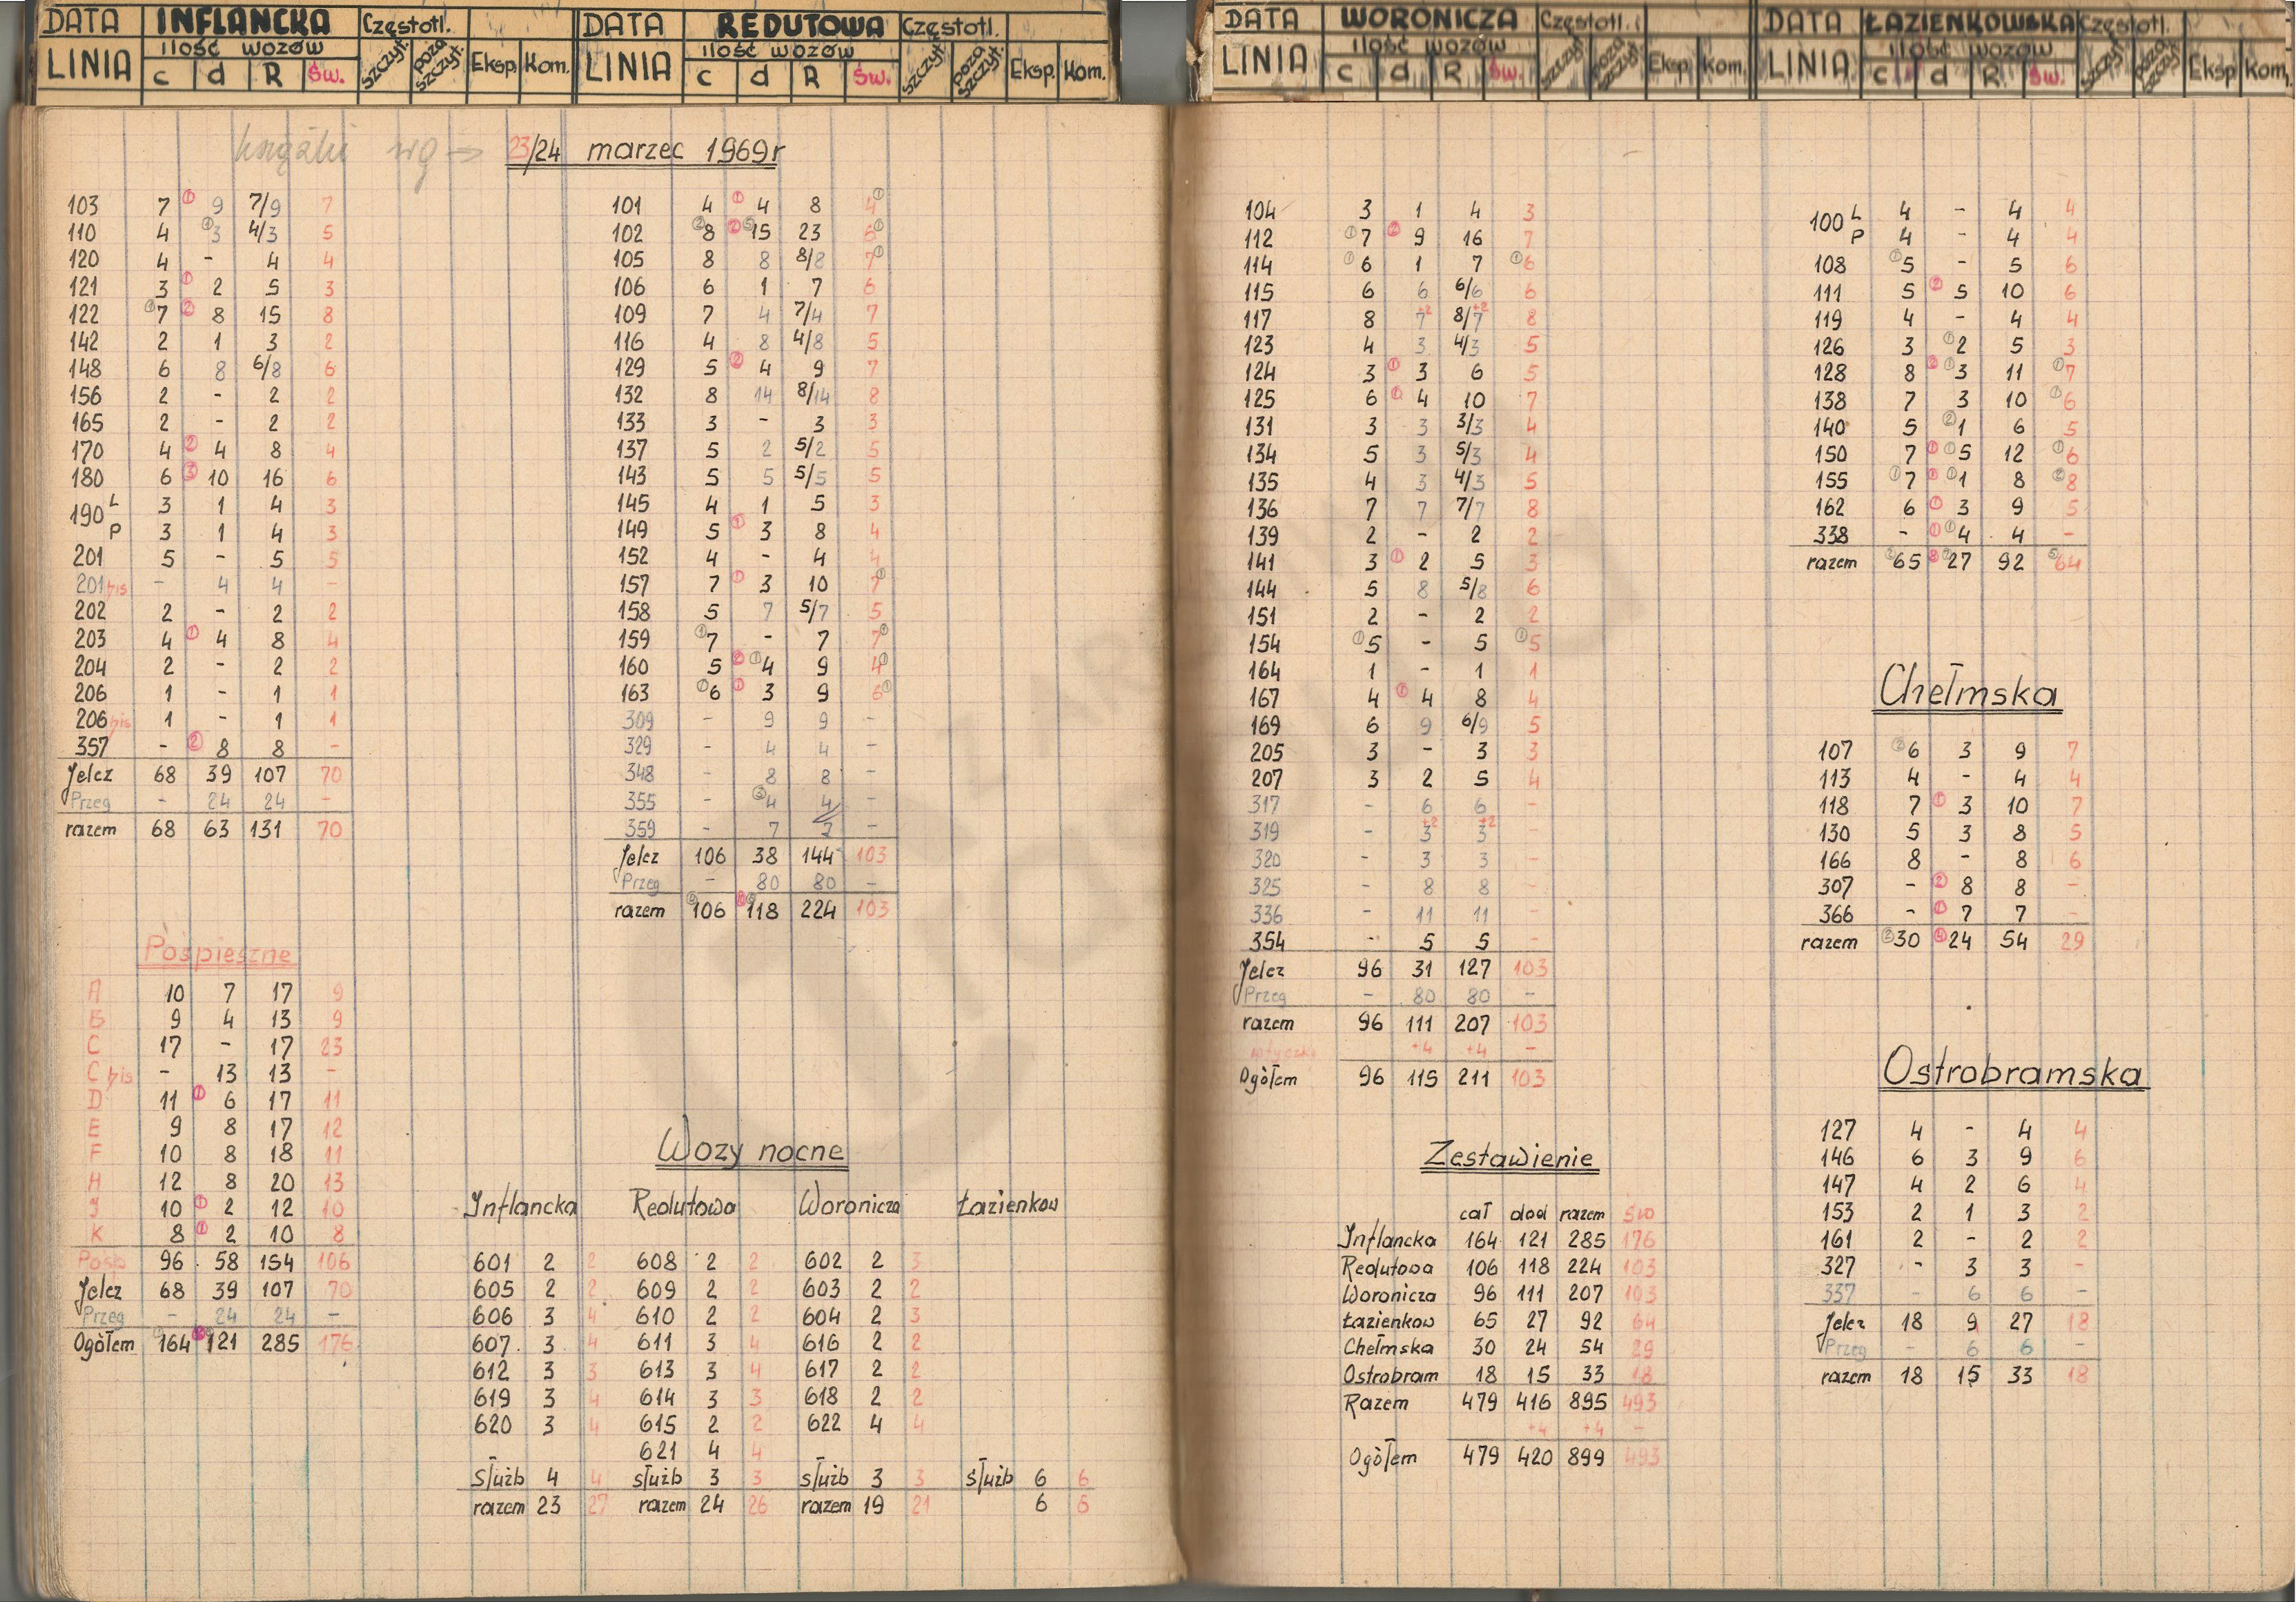 DATA INFLANCKA Częstotl.
LINIA ilość wozów szczyt. poza szczyt. Eksp. Kom.
c d R św.
DATA REDUTOWA Częstotl.
LINIA ilość wozów szczyt. poza szczyt. Eksp. Kom.
c d R św.
DATA WORONICZA Częstotl.
LINIA ilość wozów szczyt. poza szczyt. Eksp. Kom.
c d R św.
DATA ŁAZIENKOWSKA Częstotl.
LINIA ilość wozów szczyt. poza szczyt. Eksp. Kom.
c d R św.
23/24 marzec 1969r
103 7 ① 9 7/9 7
110 4 ① 3 4/3 5
120 4 - 4 4
121 3 ① 2 5 3
122 ① 7 ② 8 15 8
142 2 1 3 2
148 6 8 6/8 6
156 2 - 2 2
165 2 - 2 2
170 4 ② 4 8 4
180 6 ③ 10 16 6
190 L 3 1 4 3
P 3 1 4 3
201 5 - 5 5
201 bis - 4 4 -
202 2 - 2 2
203 4 ① 4 8 4
204 2 - 2 2
206 1 - 1 1
206 bis 1 - 1 1
357 - ② 8 8 -
Jelcz 68 39 107 70
Przeg - 24 24 -
razem 68 63 131 70
Pośpieszne
A 10 7 17 9
B 9 4 13 9
C 17 - 17 23
C bis - 13 13 -
D 11 ① 6 17 11
E 9 8 17 12
F 10 8 18 11
H 12 8 20 13
J 10 ① 2 12 10
K 8 ① 2 10 8
Pośp 96 58 154 106
Jelcz 68 39 107 70
Przeg - 24 24 -
Ogółem 164 121 285 176
101 4 ① 4 8 4 ①
102 ② 8 ② ⑤ 15 23 6 ①
105 8 8 8/8 7 ①
106 6 1 7 6
109 7 4 7/4 7
116 4 8 4/8 5
129 5 ② 4 9 7
132 8 14 8/14 8
133 3 - 3 3
137 5 2 5/2 5
143 5 5 5/5 5
145 4 1 5 3
149 5 ① 3 8 4
152 4 - 4 4
157 7 ① 3 10 7 ①
158 5 7 5/7 5
159 ① 7 - 7 7 ①
160 5 ② ① 4 9 4 ①
163 ① 6 ① 3 9 6 ①
309 - 9 9 -
329 - 4 4 -
348 - 8 8 -
355 - ③ 4 4 -
359 - 7 7 -
Jelcz 106 38 144 103
Przeg - 80 80 -
razem 106 118 224 103
Wozy nocne
Inflancka Redutowa Woronicza Łazienkow
601 2 2 608 2 2 602 2 3
605 2 2 609 2 2 603 2 2
606 3 4 610 2 2 604 2 3
607 3 4 611 3 4 616 2 2
612 3 3 613 3 4 617 2 2
619 3 4 614 3 3 618 2 2
620 3 4 615 2 2 622 4 4
621 4 4
służb 4 4 służb 3 3 służb 3 3 służb 6 6
razem 23 27 razem 24 26 razem 19 21 6 6
104 3 1 4 3
112 ① 7 ② 9 16 7
114 ① 6 1 7 ① 6
115 6 6 6/6 6
117 8 7 +2 8/7 +2 8
123 4 3 4/3 5
124 3 ① 3 6 5
125 6 ① 4 10 7
131 3 3 3/3 4
134 5 3 5/3 4
135 4 3 4/3 5
136 7 7 7/7 8
139 2 - 2 2
141 3 ① 2 5 3
144 5 8 5/8 6
151 2 - 2 2
154 ① 5 - 5 ① 5
164 1 - 1 1
167 4 ① 4 8 4
169 6 9 6/9 5
205 3 - 3 3
207 3 2 5 4
317 - 6 6 -
319 - 3 +2 3 +2 -
320 - 3 3 -
325 - 8 8 -
336 - 11 11 -
354 - 5 5 -
Jelcz 96 31 127 103
Przeg - 80 80 -
razem 96 111 207 103
+4 +4 -
Ogółem 96 115 211 103
Zestawienie
cał dod razem św
Inflancka 164 121 285 176
Redutowa 106 118 224 103
Woronicza 96 111 207 103
Łazienkow 65 27 92 64
Chełmska 30 24 54 29
Ostrobram 18 15 33 18
Razem 479 416 895 493
+4 +4 -
Ogółem 479 420 899 493
100 L 4 - 4 4
P 4 - 4 4
108 ① 5 - 5 6
111 5 ② 5 10 6
119 4 - 4 4
126 3 ① 2 5 3
128 8 ② ① 3 11 ① 7
138 7 3 10 ① 6
140 5 ② 1 6 5
150 7 ① ① 5 12 ① 6
155 ① 7 ① ① 1 8 ② 8
162 6 ① 3 9 5
338 - ① ① 4 4 -
razem ② 65 ⑧ 27 92 ⑤ 64
Chełmska
107 ② 6 3 9 7
113 4 - 4 4
118 7 ① 3 10 7
130 5 3 8 5
166 8 - 8 6
307 - ② 8 8 -
366 - ① 7 7 -
razem ② 30 ④ 24 54 29
Ostrobramska
127 4 - 4 4
146 6 3 9 6
147 4 2 6 4
153 2 1 3 2
161 2 - 2 2
327 - 3 3 -
337 - 6 6 -
Jelcz 18 9 27 18
Przeg - 6 6 -
razem 18 15 33 18